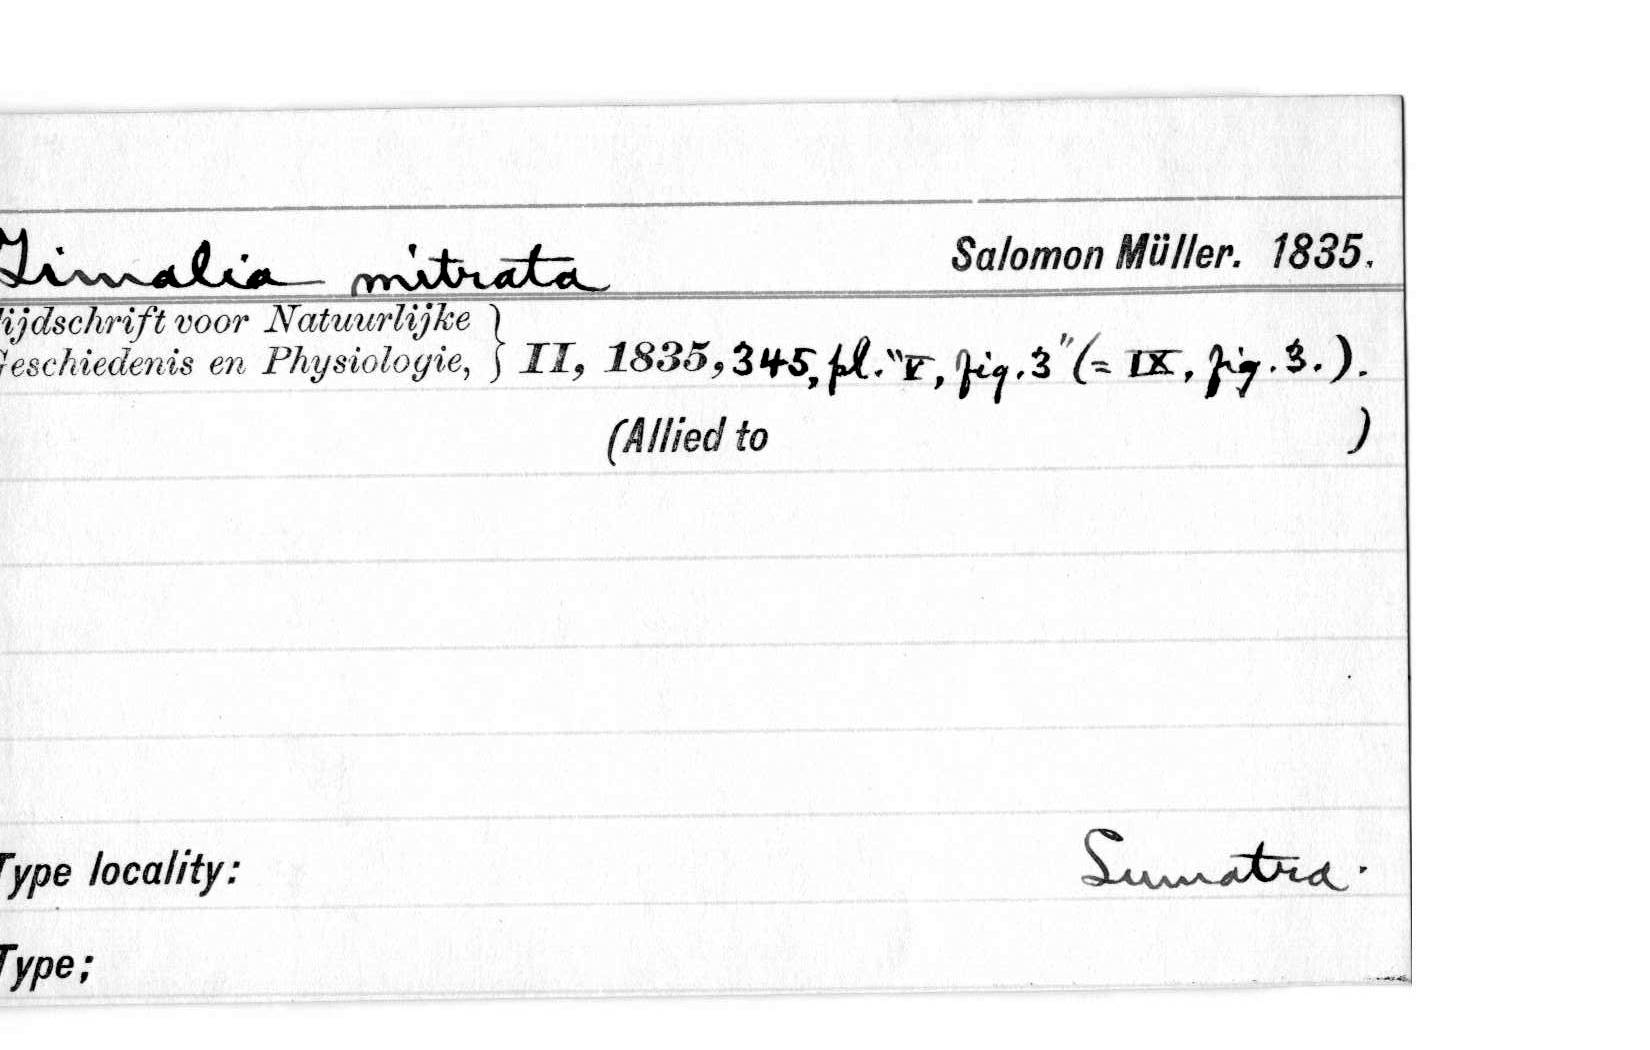 Timalia mitrata Salomon Müller. 1835.
Tijdschrift voor Natuurlijke
Geschiedenis en Physiologie, } II, 1835, 345, pl. "V, fig. 3" (= IX, fig. 3.).
(Allied to )
Type locality: Sumatra.
Type;